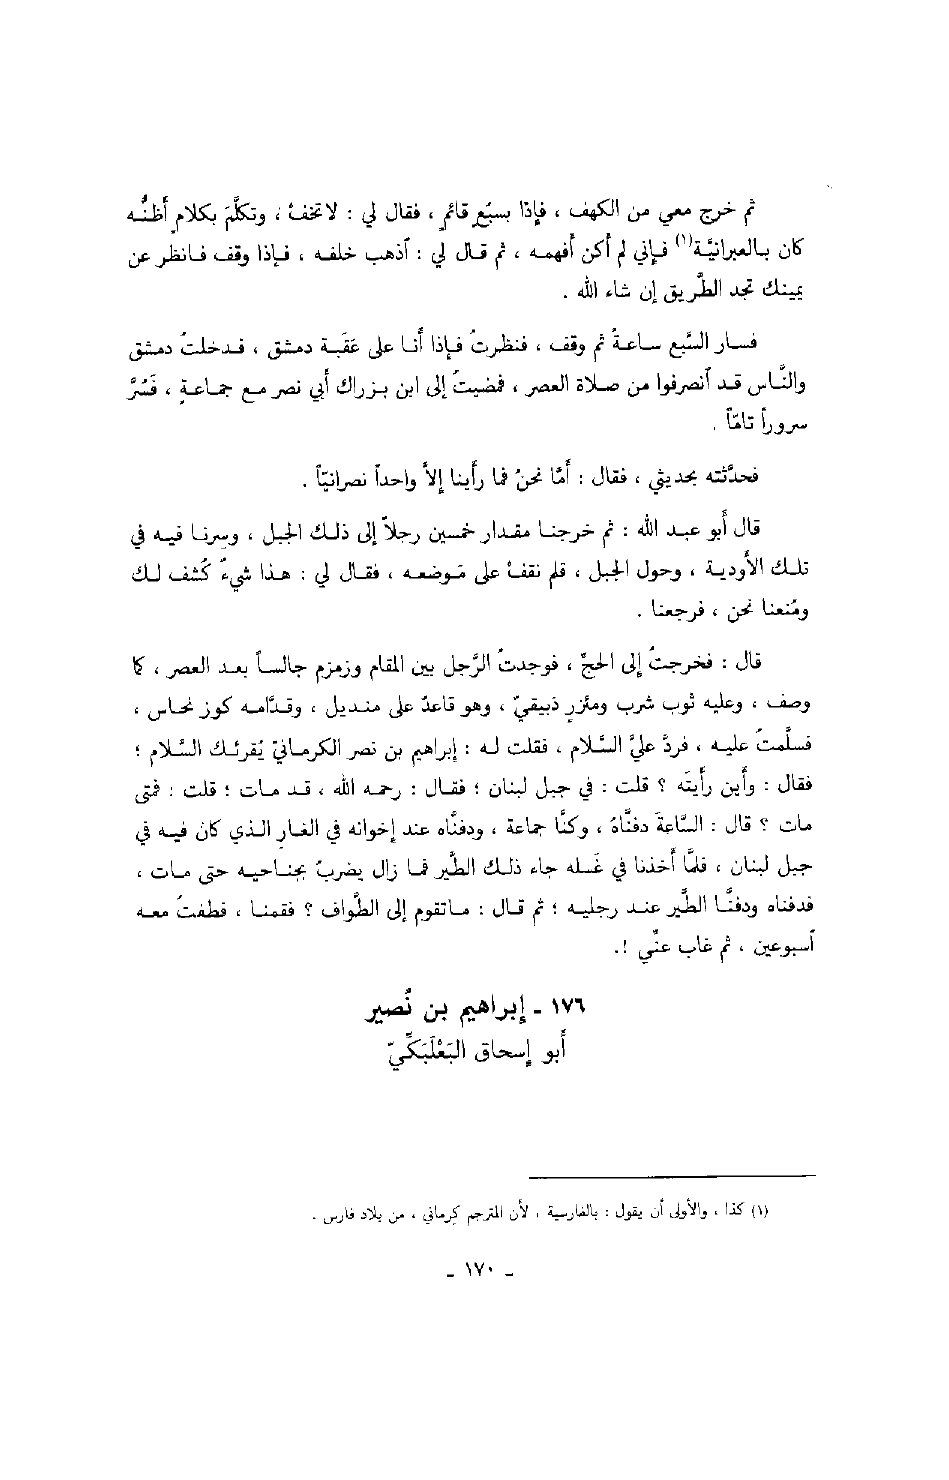 ثم خرج معي من الكهف ، فإذا بسبُعٍ قائمٍ ، فقال لي : لاتخفْ ، وتكلَّمَ بكلامٍ أظنُّه
كان بالعبرانيَّة(١) فإني لم أكن أفهمه ، ثم قال لي : آذهب خلفه ، فإذا وقف فانظر عن
يمينك تجد الطَّريق إن شاء الله .
فسار السَّبع ساعةً ثم وقف ، فنظرتُ فإذا أنا على عَقَبة دمشق ، فدخلتُ دمشق
والنَّاس قد آنصرفوا من صلاة العصر ، فمضيتُ إلى ابن بزراك أبي نصر مع جماعةٍ ، فَسُرَّ
سروراً تامّاً .
فحدَّثته بحديثي ، فقال : أمَّا نحنُ فما رأينا إلاَّ واحداً نصرانيّاً .
قال أبو عبد الله : ثم خرجنا مقدار خمسين رجلاً إلى ذلك الجبل ، وسِرنا فيه في
تلك الأودية ، وحول الجبل ، فلم نقفْ على مَوضعه ، فقال لي : هذا شيءٌ كُشف لك
ومُنعنا نحن ، فرجعنا .
قال : فخرجتُ إلى الحجِّ ، فوجدتُ الرَّجل بين المقام وزمزم جالساً بعد العصر ، كما
وصف ، وعليه ثوب شرب ومئزر دَبيقيّ ، وهو قاعدٌ على منديل ، وقدَّامه كوز نحاس ،
فسلَّمتُ عليه ، فردَّ عليَّ السَّلام ، فقلت له : إبراهيم بن نصر الكرمانيّ يُقرئك السَّلام ؛
فقال : وأين رأيتَه ؟ قلت : في جبل لبنان ؛ فقال : رحمه الله ، قد مات ؛ قلت : فمتى
مات ؟ قال : السَّاعةَ دفنَّاهُ ، وكنَّا جماعة ، ودفنَّاه عند إخوانه في الغار الذي كان فيه في
جبل لبنان ، فلمَّا أخذنا في غَسله جاء ذلك الطَّير فما زال يضربُ بجناحيه حتى مات ،
فدفناه ودفنَّا الطَّير عند رجليه ؛ ثم قال : ماتقوم إلى الطَّواف ؟ فقمنا ، فطفتُ معه
آسبوعين ، ثم غاب عنِّي !.
١٧٦ ـ إبراهيم بن نُصير
أبو إسحاق البَعْلَبَكِّيّ
(١) كذا ، والأولى أن يقول : بالفارسية ، لأن المترجم كرماني ، من بلاد فارس .
ـ ١٧٠ ـ